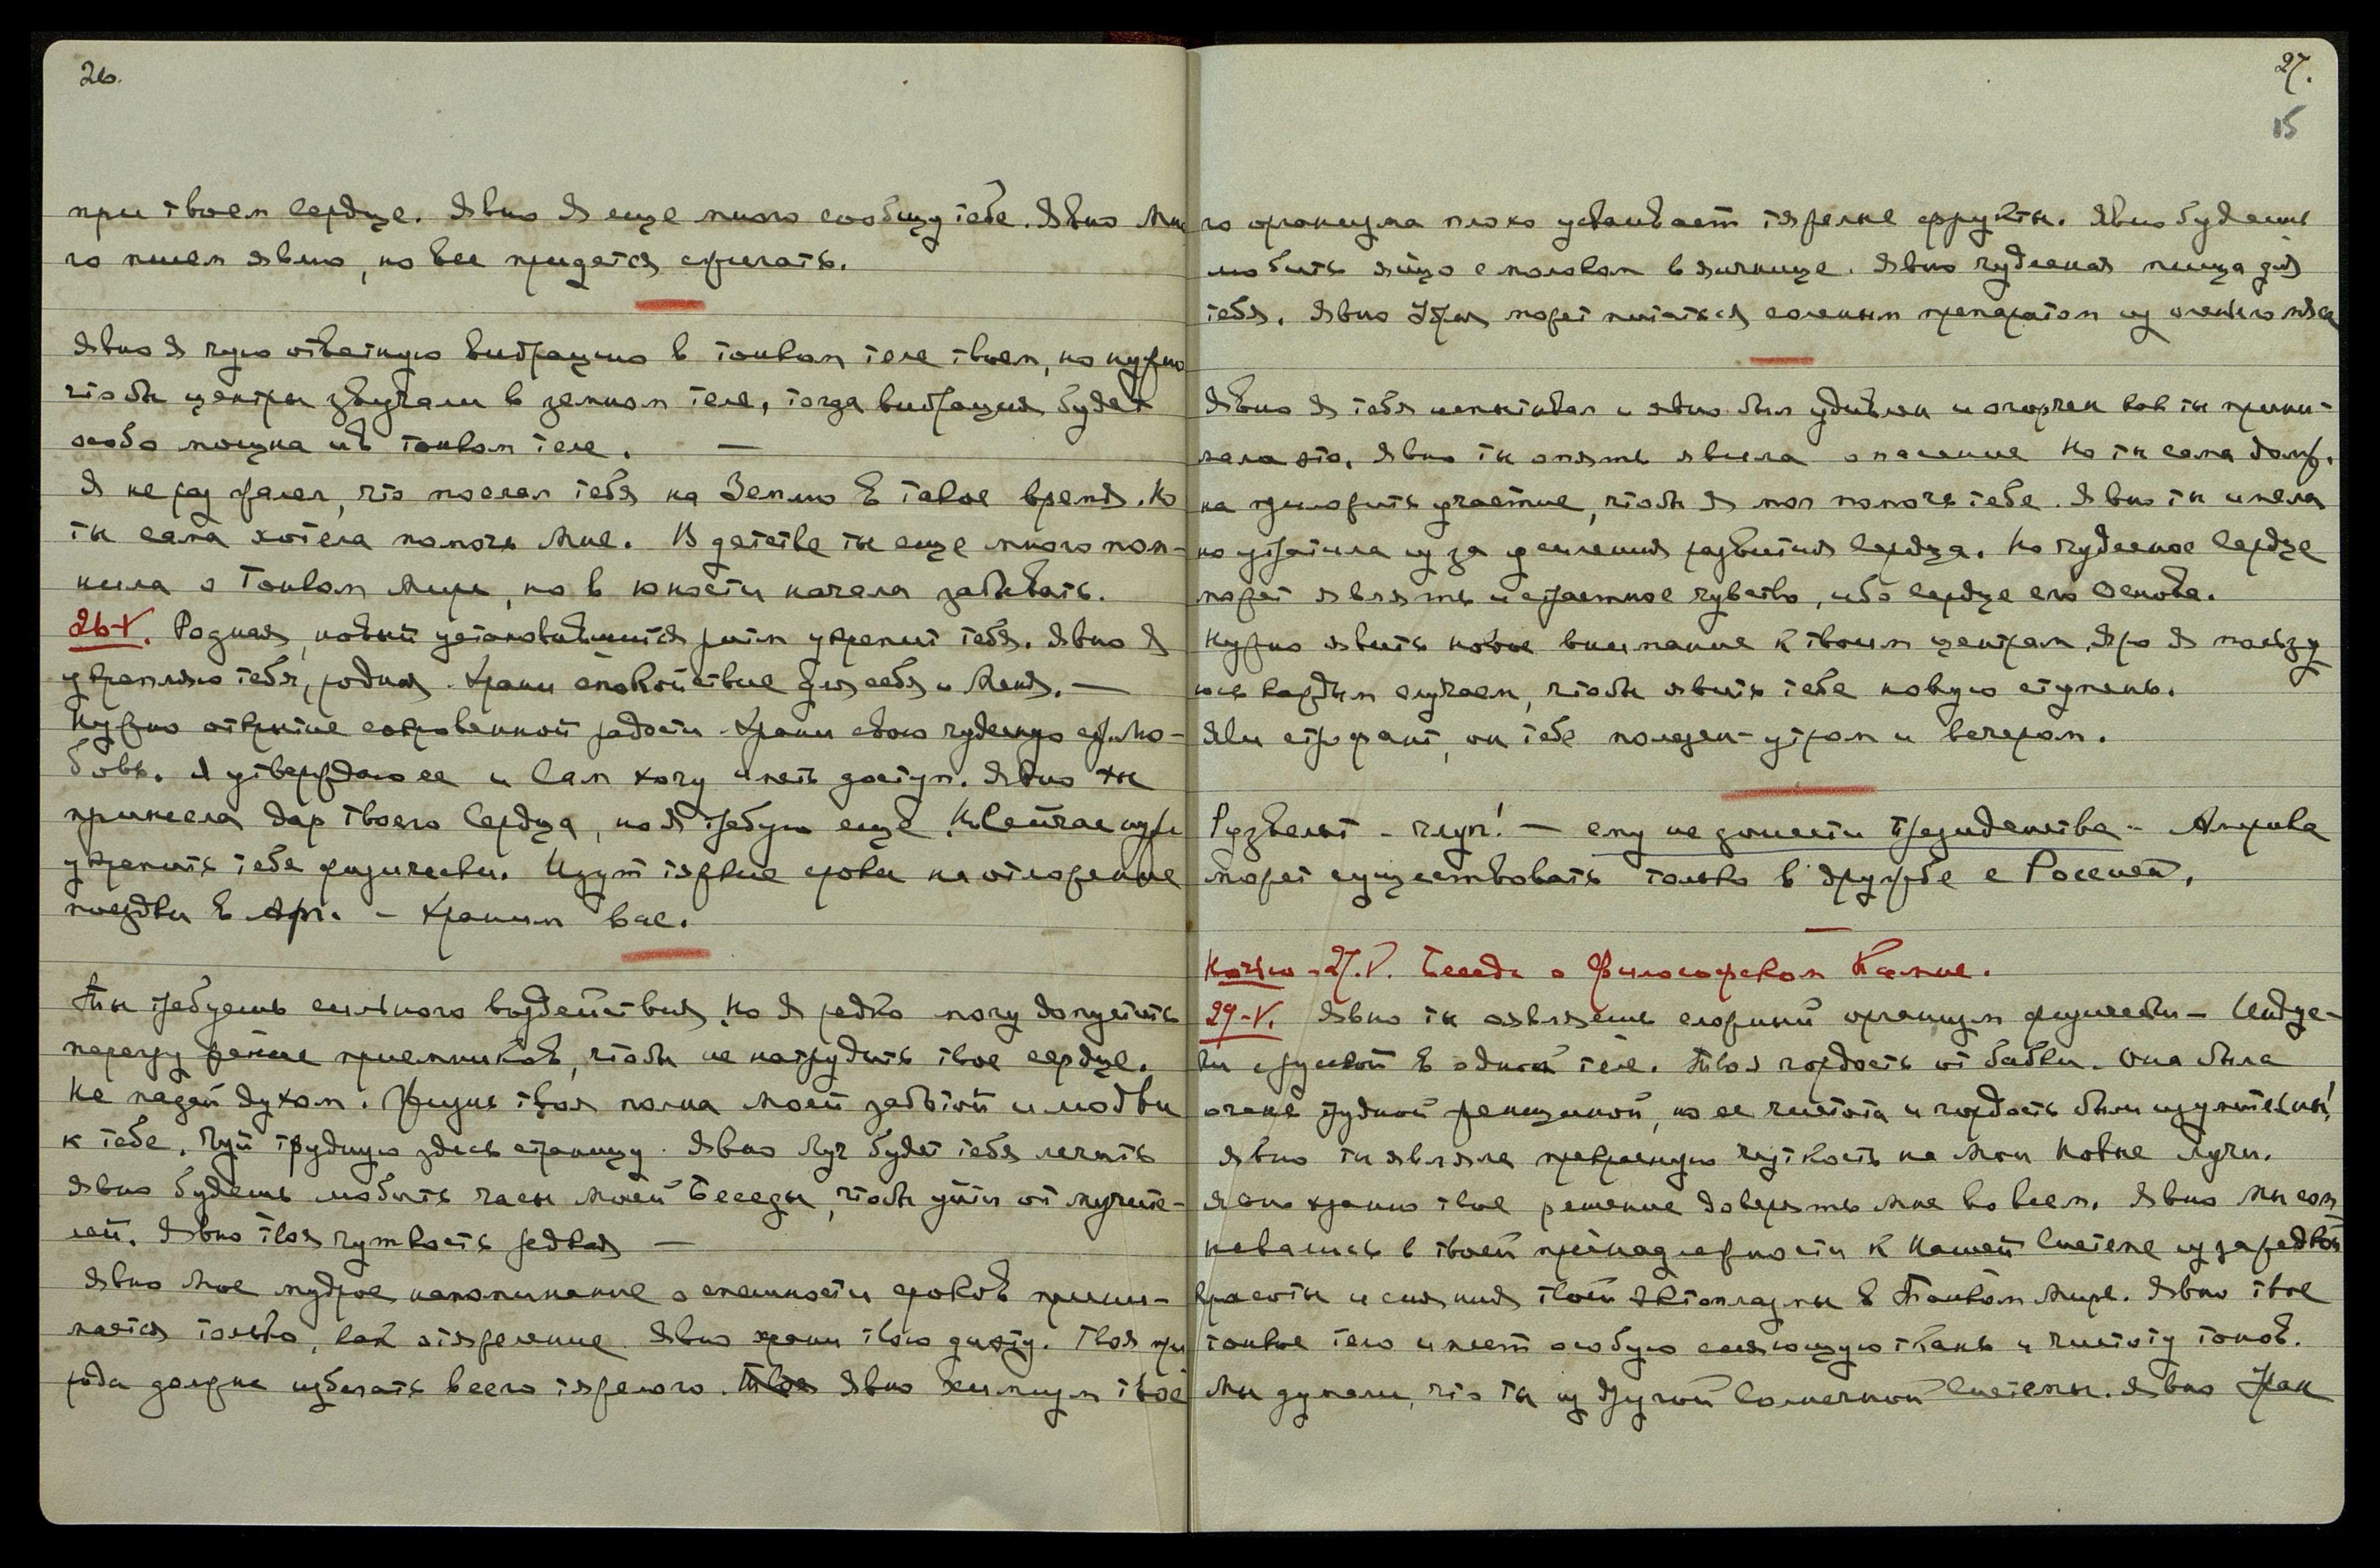 26.
при твоем сердце. Явно Я еще много сообщу тебе. Явно Мно
го пшем явно, но все придется сжигать.
Явно Я чую ответную вибрацию в тонком теле твоем, но нужно
чтобы центры звучали в земном теле, тогда вибрация будет
особо мощна и в тонком теле. —
Я не раз жалел, что послал тебя на Землю в такое время. Но
ты сама хотела помочь Мне. В детстве ты еще много пом-
нила о Тонком Мире, но в юности начала забывать.
26-V. Родная, новый установившийся ритм укрепит тебя. Явно Я
укрепляю тебя, родная. Храни спокойствие для себя и Меня. —
Нужно открытие сокровенной радости. Храни свою чудесную лю-
бовь. Я утверждаю ее и Сам хочу иметь доступ. Явно ты
принесла дар твоего Сердца, но Я требую еще. Но сейчас нужн
укрепить тебя физически. Идут тяжкие сроки на отложение
поездки в Ам. – Храним вас.
Ты требуешь сильного воздействия, но Я редко могу допустить
перегружение приемников, чтобы не натрудить твое сердце.
Не падай духом. Жизнь твоя полна Моей заботой и любви
к тебе. Чуй трудную здесь страницу. Явно Луч будет тебя лечить
Явно будешь любить часы Моей Беседы, чтобы уйти от мучите-
лей. Явно твоя чуткость редкая —
Явно Мое мудрое напоминание о спешности сроков прини-
мается только, как отяжеление. Явно храни твою диэту. Твоя при
рода должна избегать всего тяжелого. Явно химизм твое
27.
15
го организма плохо усваивает тяжелые фрукты. Явно будешь
любить яйцо с молоком в яичнице. Явно чудесная пища для
тебя. Явно Урая может питаться соленым препаратом из оленьего мяса
Явно Я тебя испытывал и явно был удивлен и огорчен как ты прини-
мала это. Явно ты опять явила опасение Но ты сама долж.
на приложить участие, чтобы Я мог помочь тебе. Явно ты имела
но утратила из за усиления развития Сердца. Но чудесное Сердце
может являть и страстное чувство, ибо сердце его Основа.
Нужно явить новое внимание к твоим центрам, Яро Я пользу
юсь каждым случаем, чтобы явить тебе новую ступень.
Яви строфант, он тебе полезен - утром и вечером.
Рузвельт – глуп! — ему не донести Президентства – Америка
может существовать только в дружбе с Россией.
Ночью – 27.V. Беседа о Философском Камне.
29-V. Явно ты являешь сложный организм физически – Индус-
ки и русской в одном теле. Твоя гордость от бабки. Она была
очень трудной женщиной, но ее чистота и гордость были изумительны!
Явно ты являла прекрасную чуткость на Мои Новые Лучи.
Явно храню твое решение доверять Мне во всем. Явно Мы сом
невались в твоей принадлежности к Нашей Системе из за редкой
красоты и сияния твоей Эктоплазмы в Тонком Мире. Явно твое
тонкое тело имеет особую сияющую ткань и чистоту тонов.
Мы думали, что ты из другой Солнечной Системы. Явно Уран